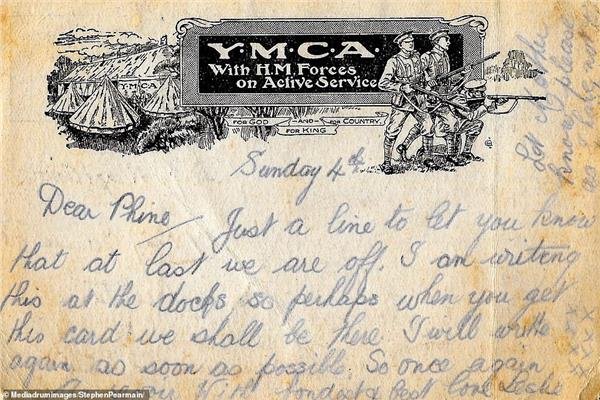 Y.M.C.A.
With H.M. Forces
on Active Service
Y M C A
FOR GOD —AND— FOR COUNTRY.
FOR KING
Sunday 4th
Dear Phine Just a line to let you know
that at last we are off. I am writeng
this at the docks so perhaps when you get
this card we shall be there. I will write
again as soon as possible. So once again
With fondest & best love Leslie
xxxxx
xxxx
Let
know please
© Mediadrumimages/StephenPearmain/